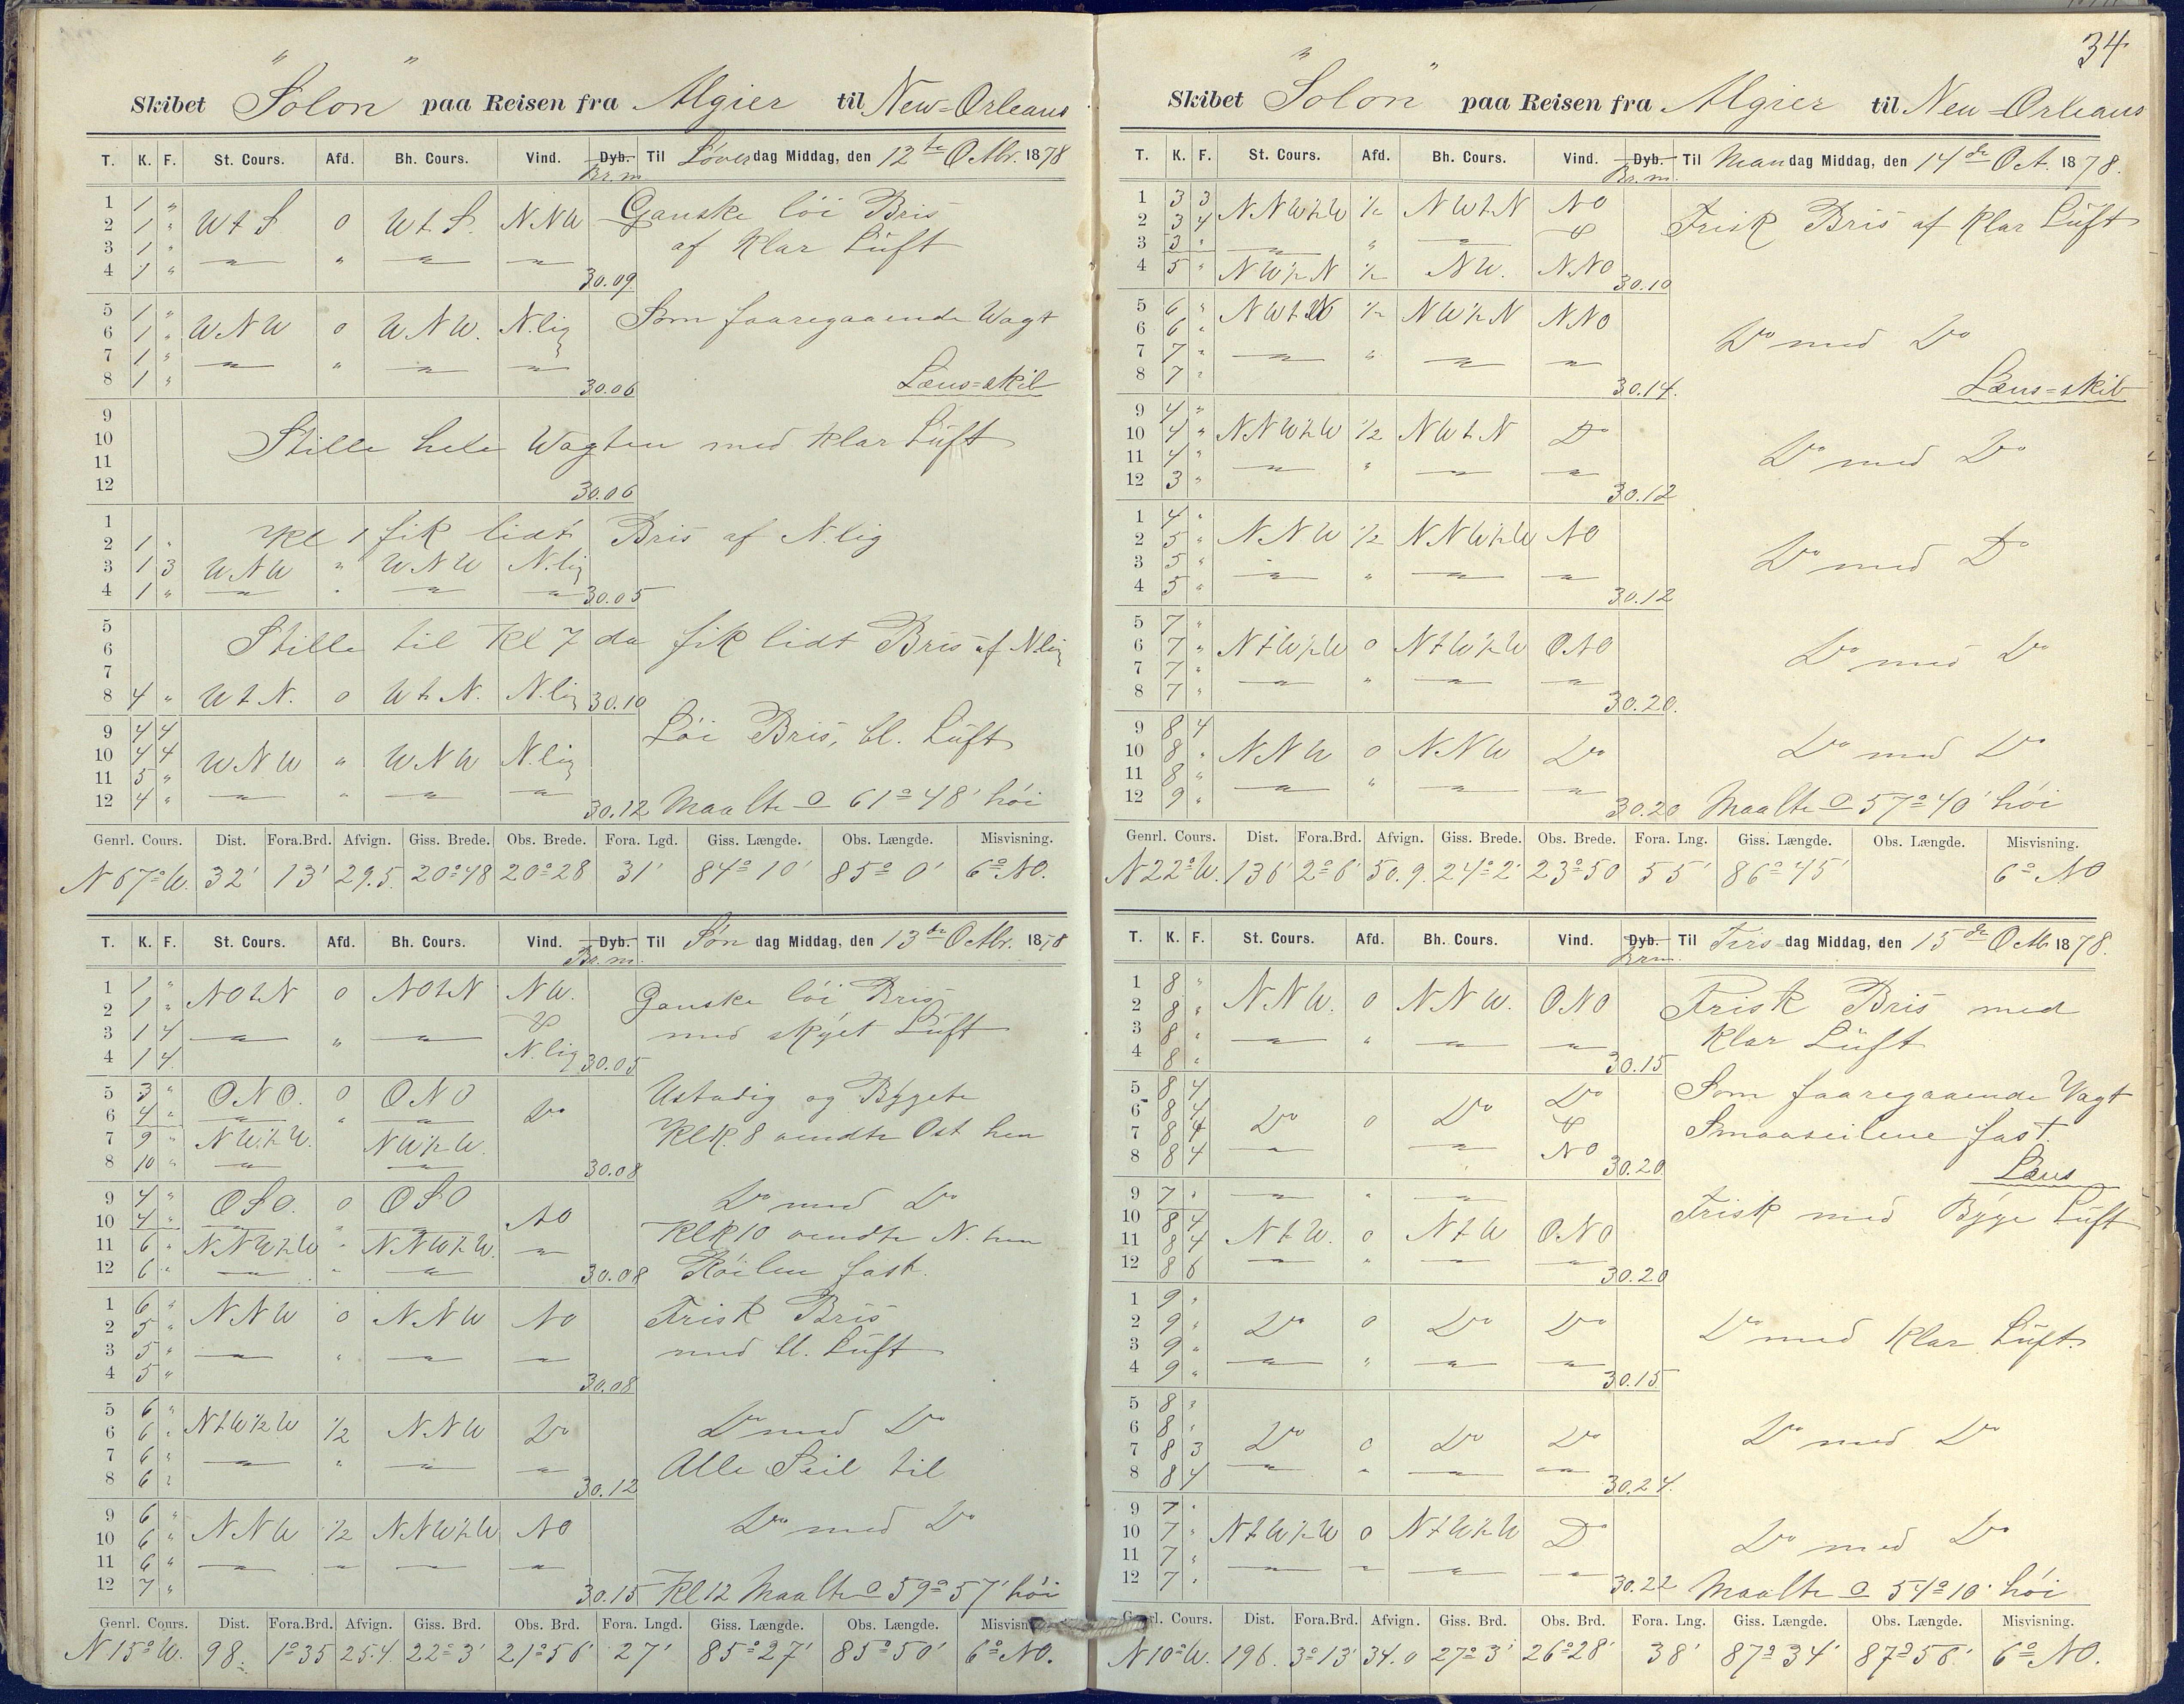 "Solon"
Skibet Solon paa Reisen fra Algier til New-Orleans
T. K. F. St. Cours. Afd. Bh. Cours. Vind. Dyb. Til Løverdag Middag, den 12te Octbr. 1878
Br.m.
1 1 "
2 1 " W t S 0 W t S. NNW Ganske löi Bris
3 1 " af klar Luft
4 1 " 30.09
5 1 " Som faaregaaende Vagt
6 1 " WNW 0 WNW. N.lig
7 1 "
8 1 " 30.06 Læns=skib
9
10 Stille hele Wagten med klar Luft
11
12 30.06
1 Kl 1 fik lidt Bris af N.lig
2 1 "
3 1 3 WNW " WNW N.lig
4 1 " 30.05
5
6 Stille til Kl 7 da fik lidt Bris af N.lig
7
8 4 " W t N. 0 W t N. N.lig 30.10
9 4 4 Löi Bris, bl. Luft
10 4 4 WNW " WNW N.lig
11 5 "
12 4 " 30.12 Maalte ʘ 61° 48' höi
Genrl. Cours. Dist. Fora.Brd. Afvign. Giss. Brede. Obs. Brede. Fora. Lgd. Giss. Længde. Obs. Længde. Misvisning.
N 67° W. 32' 13' 29.5. 20° 48 20° 28 31' 84° 10' 85° 0' 6° NO.
T. K. F. St. Cours. Afd. Bh. Cours. Vind. Dyb. Til Søn dag Middag, den 13de Octbr. 1878
Br.m.
1 1 " NO t N 0 NO t N NW. Ganske löi Bris
2 1 "
3 1 4 med skyet Luft
4 1 4 N.lig 30.05
5 3 " ONO. 0 ONO Ustadig og Bygete
6 4 " Do
7 9 " NW ½ W. NW ½ W. KlK. 8 vendte Ost hen
8 10 " 30.08
9 4 " OSO. 0 OSO Do med Do
10 4 " NO KlK 10 vendte N. hen
11 6 " NNW ½ W " NNW ½ W.
12 6 " 30.08 Röilen fast.
1 6 " NNW 0 NNW NO Frisk Bris
2 5 "
3 5 " med bl. Luft
4 5 " 30.08
5 6 " N t W ½ W ½ NNW Do Do med Do
6 6 "
7 6 " Alle Seil til
8 6 " 30.12
9 6 " Do med Do
10 6 " NNW ½ NNW ½ W NO
11 6 "
12 7 " 30.15 Kl 12 Maalte ʘ 59° 57' höi
Genrl. Cours. Dist. Fora.Brd. Afvign. Giss. Brd. Obs. Brd. Fora. Lngd. Giss. Længde. Obs. Længde. Misvisn
N 15° W. 98. 1° 35 25.4. 22° 3' 21° 56' 27' 85° 27' 85° 50' 6° NO.
34
"Solon"
Skibet Solon paa Reisen fra Algier til New-Orleans
T. K. F. St. Cours. Afd. Bh. Cours. Vind. Dyb. Til Mandag Middag, den 14de Oct. 1878.
Br.m.
1 3 3 NNW ½ W ½ NW t N NO Frisk Bris af klar Luft
2 3 4
3 3 "
4 5 " NW ½ N ½ NW. NNO 30.10
5 6 " NW t N ½ NW ½ N NNO
6 6 " Do med Do
7 7 "
8 7 " 30.14. Læns=skib
9 4 "
10 4 " NNW ½ W ½ NW t N Do Do med Do
11 4 "
12 3 " 30.12
1 4 "
2 5 " NNW ½ NNW ½ W NO Do med Do
3 5 "
4 5 " 30.12
5 7 "
6 7 " N t W ½ W 0 N t W ½ W ONO Do med Do
7 7 "
8 7 " 30.20.
9 8 4
10 8 " NNW 0 NNW Do Do med Do
11 8 "
12 9 " 30.20 Maalte ʘ 57° 40' höi
Genrl. Cours. Dist. Fora.Brd. Afvign. Giss. Brede. Obs. Brede. Fora. Lng. Giss. Længde. Obs. Længde. Misvisning.
N 22° W. 136' 2° 6' 50.9. 24° 2' 23° 50 55' 86° 45' 6° NO
T. K. F. St. Cours. Afd. Bh. Cours. Vind. Dyb. Til Tirs dag Middag, den 15de Octb 1878.
Br.m.
1 8 " NNW. 0 NNW. ONO Frisk Bris med
2 8 "
3 8 " klar Luft
4 8 " 30.15
5 8 4 Do Som faaregaaende Vagt
6 8 4 Do 0 Do
7 8 4 Smaaseilene fast.
8 8 4 NO 30.20 Læns
9 7 " Frisk med Byge Luft
10 8 4 N t W. 0 N t W ONO
11 8 4
12 8 6 30.20
1 9 "
2 9 " Do 0 Do Do Do med klar Luft.
3 9 "
4 9 " 30.15
5 8 "
6 8 " Do 0 Do Do Do med Do
7 8 3
8 8 4 30.24.
9 7 "
10 7 " N t W ½ W 0 N t W ½ W Do Do med Do
11 7 "
12 7 " 30.22 Maalte ʘ 54° 10' höi
Genrl. Cours. Dist. Fora.Brd. Afvign. Giss. Brd. Obs. Brd. Fora. Lng. Giss. Længde. Obs. Længde. Misvisning.
N 10° W. 196. 3° 13' 34.0 27° 3' 26° 28' 38' 87° 34' 87° 56' 6° NO.